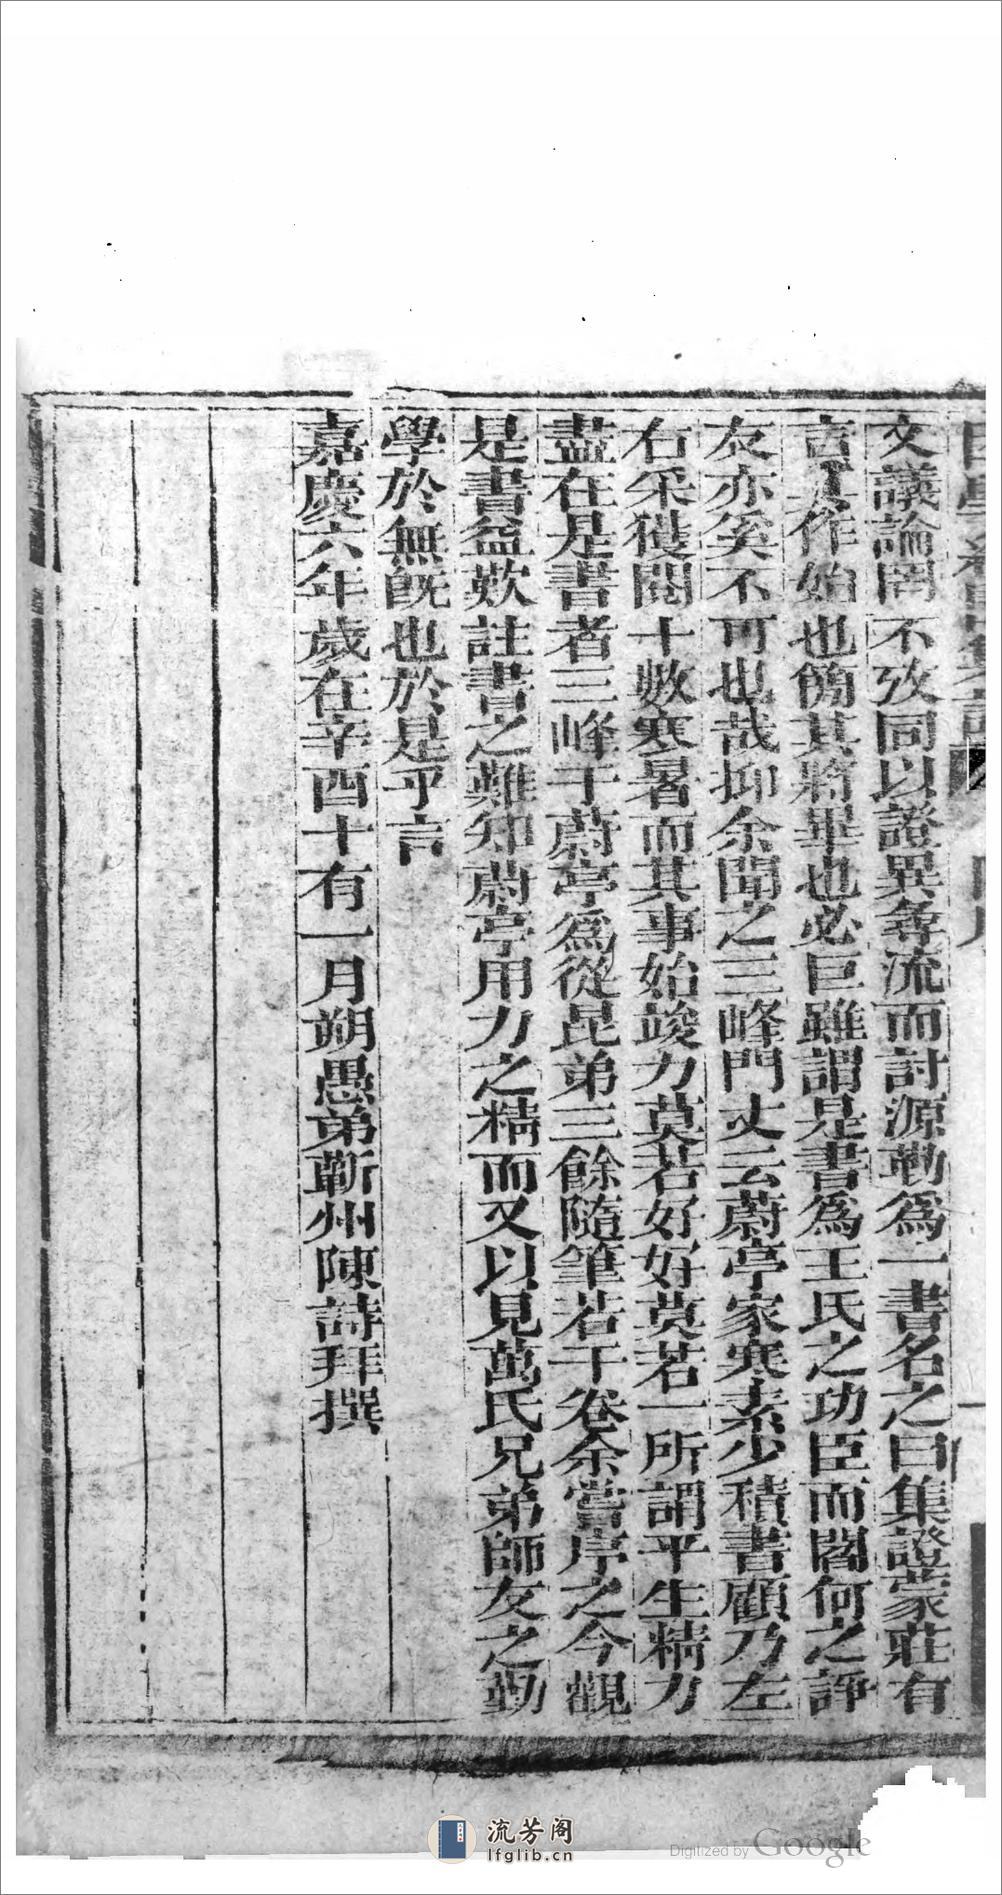 文議論罔不攷同以證異每流而討源勒爲一書名之曰集證蒙莊有
言其作始也簡其將畢也必巨雖謂是書爲王氏之功臣而閻何之諍
友亦奚不可也哉抑余聞之三峰門丈云蔚亭家寒素少積書顧乃左
右采獲閱十數寒暑而其事始竣力莫若好好莫若一所謂平生精力
盡在是書者三峰于蔚亭爲從昆弟三餘隨筆若干卷余嘗序之今觀
是書益歎註書之難知蔚亭用力之精而又以見萬氏兄弟師友之勤
學於無旣也於是乎言
嘉慶六年歲在辛酉十有一月朔愚弟蘄州陳詩拜撰
流芳阁
lfglib.cn
Digitized by Google